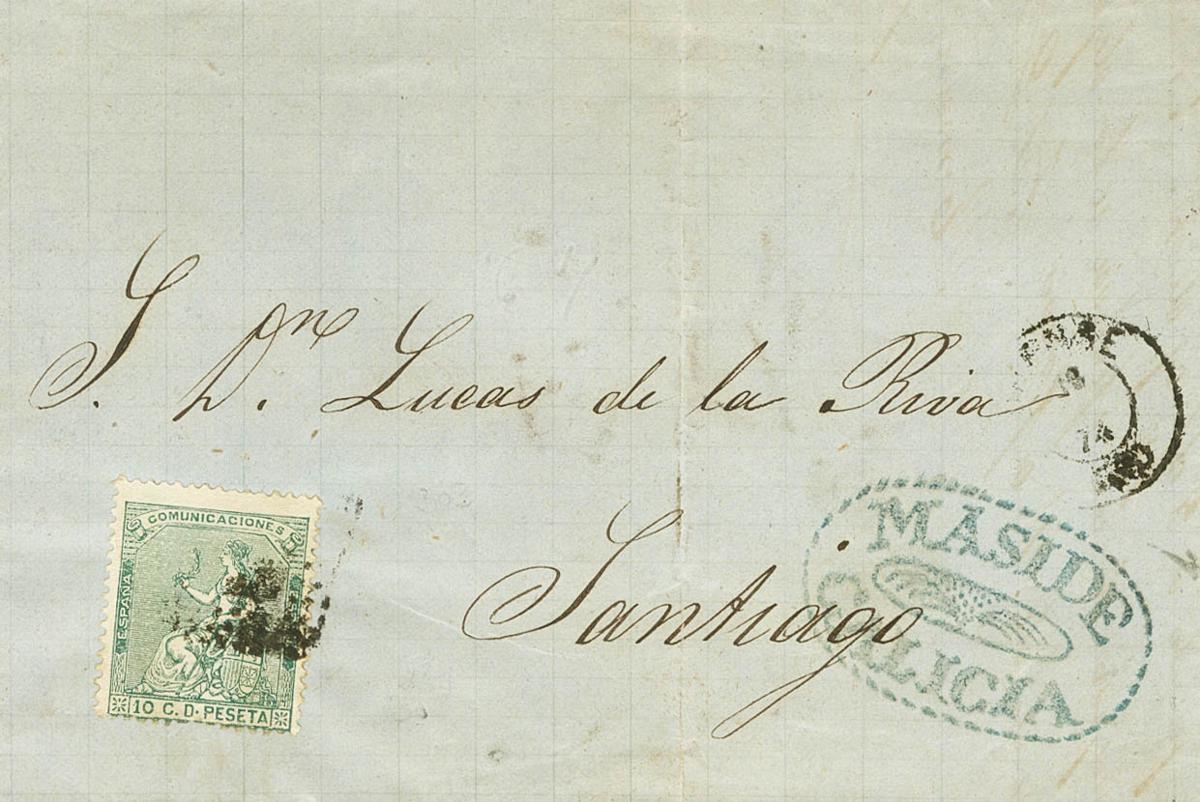 S. Dn. Lucas de la Riva
Santiago
COMUNICACIONES
ESPAÑA
10 C. D. PESETA
MASIDE
GALICIA
74